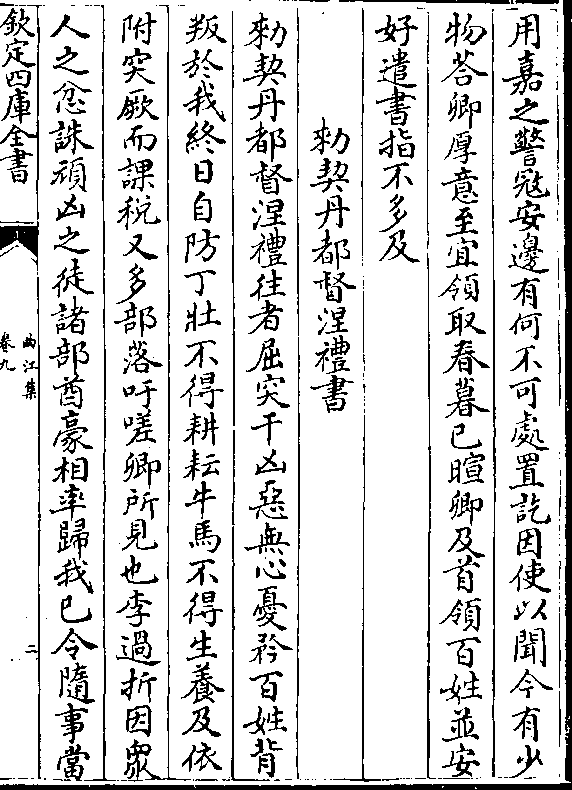 用嘉之警冦安邊有何不可處置訖因使以聞今有少
物荅卿厚意至宜領取春暮已暄卿及首領百姓並安
好遣書指不多及
勅契丹都督湼禮書
勅契丹都督湼禮徃者屈突干凶惡無心憂矜百姓背
叛於我終日自防丁壯不得耕耘牛馬不得生養及依
附突厥而課稅又多部落吁嗟卿所見也李過折因衆
人之忿誅頑凶之徒諸部酋豪相率歸我已令隨事當
欽定四庫全書
曲江集
卷九
二